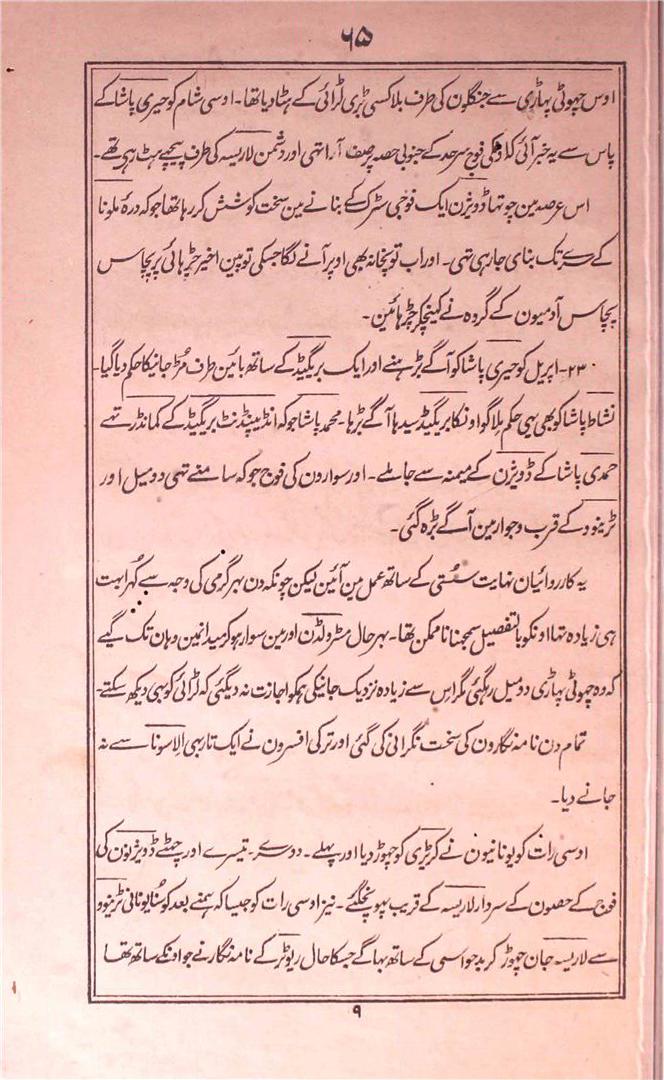 ۶۵
اوس چہوٹی پہاڑی سے جنگلون کی طرف بلا کسی بڑی لڑائی کے ہٹا دیا تھا۔ اوسی شام کو حیری پاشا کے
پاس سے یہ خبر آئی کہ اونکی فوج سرحد کے جنوبی حصہ پر صف آرا تہی اور دشمن لاریسہ کی طرف پیچہے ہٹ رہی تھے۔
اس عرصہ مین چوتہا ڈویژن ایک فوجی سڑک کے بنانے مین سخت کوشش کر رہا تھا جو کہ درۂ ملونا
کے سرے تک بنای جا رہی تہی۔ اور اب توپخانہ بھی اوپر آنے لگا جسکی توپین اخیر چڑہائی پر پچاس
پچاس آدمیون کے گروہ نے کہینچکر چڑہائین۔
۲۳۔ اپریل کو حیری پاشا کو آگے بڑہنے اور ایک بریگیڈ کے ساتھ بائین طرف مُڑ جانیکا حکم دیا گیا۔
نشاط پاشا کو بھی یہی حکم ملا گو اونکا بریگیڈ سیدہا آگے بڑہا۔ محمد پاشا جو کہ انڈیپنڈنٹ بریگیڈ کے کمانڈر تہے
حمدی پاشا کے ڈویژن کے میمنہ سے جا ملے۔ اور سوارون کی فوج جو کہ سامنے تہی دو میل اور
ٹرینود کے قرب و جوار مین آگے بڑہ گئی۔
یہ کارروائیان نہایت سُستی کے ساتھ عمل مین آئین لیکن چونکہ دن بہر گرمی کی وجہ سے کُہراہت
ہی زیادہ تہا اونکو بالتفصیل سمجہنا ناممکن تھا۔ بہر حال مٹر ولڈن اور مین سوار ہو کر میدانمین وہان تک گئے
کہ وہ چہوٹی پہاڑی دو میل رہگئی مگر اس سے زیادہ نزدیک جانیکی ہمکو اجازت نہ دیگئی کہ لڑائی کو بہی دیکھ سکتے۔
تمام دن نامہ نگارون کی سخت نگرانی کی گئی اور ترکی افسرون نے ایک تار بہی الاسونا سے نہ
جانے دیا۔
اوسی رات کو یونانیون نے کریڑی کو چہوڑ دیا اور پہلے۔ دوسرے۔ تیسرے اور چہٹے ڈویژنون کی
فوج کے حصون کے سردار لاریسہ کے قریب پہونچگئے۔ نیز اوسی رات کو جیسا کہ ہمنے بعد کو سُنا یونانی ٹرینوو
سے لاریسہ جان چہوڑ کر بدحواسی کے ساتھ بہاگے جسکا حال ریوٹر کے نامہ نگار نے جو اونکے ساتھ تھا
۹